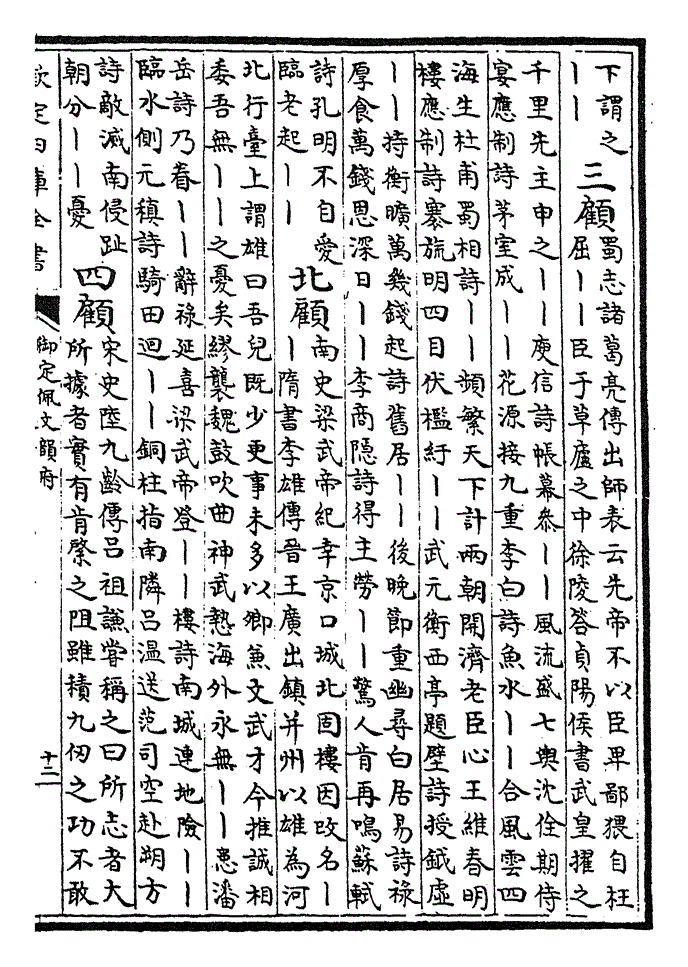 下謂之
丨丨
三顧
蜀志諸葛亮傳出師表云先帝不以臣卑鄙猥自枉
屈丨丨臣于草廬之中徐陵答貞陽侯書武皇擢之
千里先主申之丨丨庾信詩帳幕參丨丨風流盛七輿沈佺期侍
宴應制詩茅室成丨丨花源接九重李白詩魚水丨丨合風雲四
海生杜甫蜀相詩丨丨頻繁天下計兩朝開濟老臣心王維春明
樓應制詩褰旒明四目伏檻紆丨丨武元衡西亭題壁詩授鉞虛
丨丨持衡曠萬幾錢起詩舊居丨丨後晚節重幽尋白居易詩祿
厚食萬錢恩深日丨丨李商隱詩得主勞丨丨驚人肯再鳴蘇軾
詩孔明不自愛
臨老起丨丨
北顧
南史梁武帝紀幸京口城北固樓因改名丨
丨隋書李雄傳晉王廣出鎮并州以雄為河
北行臺上謂雄曰吾兒既少更事未多以卿兼文武才今推誠相
委吾無丨丨之憂矣繆襲魏鼓吹曲神武慹海外永無丨丨患潘
岳詩乃眷丨丨辭祿延喜梁武帝登丨丨樓詩南城連地險丨丨
臨水側元稹詩騎田迴丨丨銅柱指南隣呂溫送范司空赴朔方
詩敵滅南侵趾
朝分丨丨憂
四顧
宋史陸九齡傳呂祖謙嘗稱之曰所志者大
所據者實有肯綮之阻雖積九仞之功不敢
欽定四庫全書
御定佩文韻府
十二